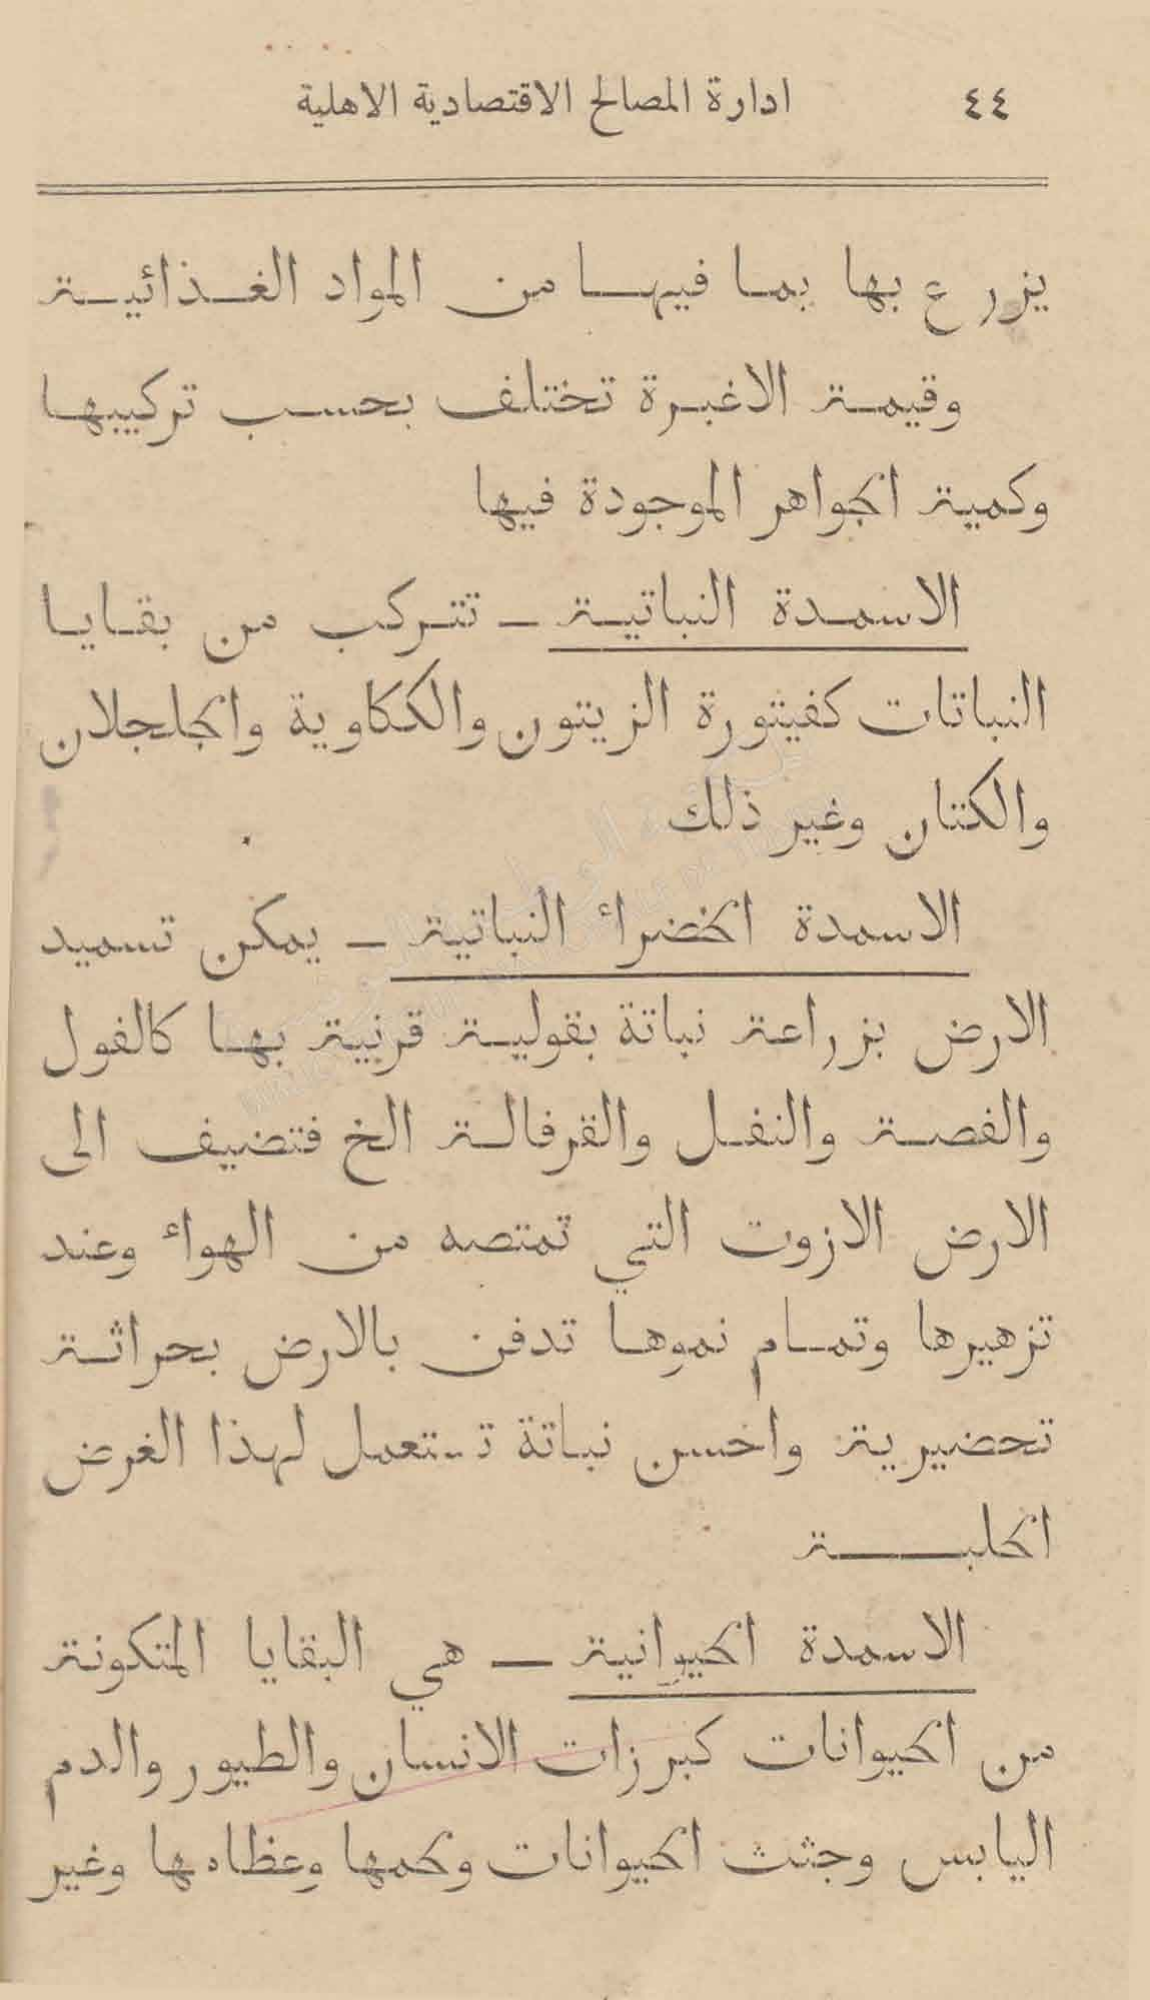 ٤٤ ادارة المصالح الاقتصادية الاهلية
يزرع بها بما فيها من المواد الغذائية
وقيمة الاغبرة تختلف بحسب تركيبها
وكمية الجواهر الموجودة فيها
الاسمدة النباتية — تتركب من بقايا
النباتات كفيتورة الزيتون والككاوية والجلجلان
والكتان وغير ذلك
الاسمدة الخضراء النباتية — يمكن تسميد
الارض بزراعة نباتة بقولية قرنية بها كالفول
والفصة والنفل والقرفالة الخ فتضيف الى
الارض الازوت التي تمتصه من الهواء وعند
تزهيرها وتمام نموها تدفن بالارض بحراثة
تحضيرية واحسن نباتة تستعمل لهذا الغرض
الحلبة
الاسمدة الحيوانية — هي البقايا المتكونة
من الحيوانات كبرزات الانسان والطيور والدم
اليابس وجثث الحيوانات ولحمها وعظامها وغير